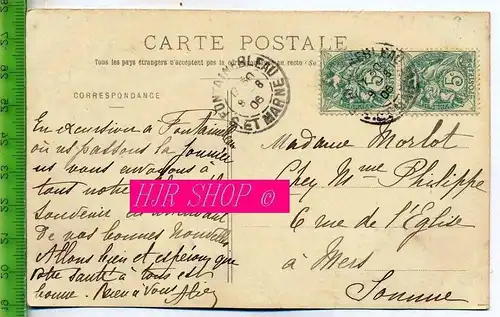 CARTE POSTALE
Tous les pays étrangers n'acceptent pas la
CORRESPONDANCE
FONTAINEBLEAU
8 06
ET MARNE
En excursion à Fontainebleau
où ns passons la journée
ns vous envoyons à
tous notre
Souvenir en
De vos bonnes nouvelles
Allons bien et espérons que
votre santé à tous est
bonne. Bien à vous
HJR SHOP ©
Madame Morlot
Chez Mme Philippe
6 rue de l'Eglise
à Mers
Somme